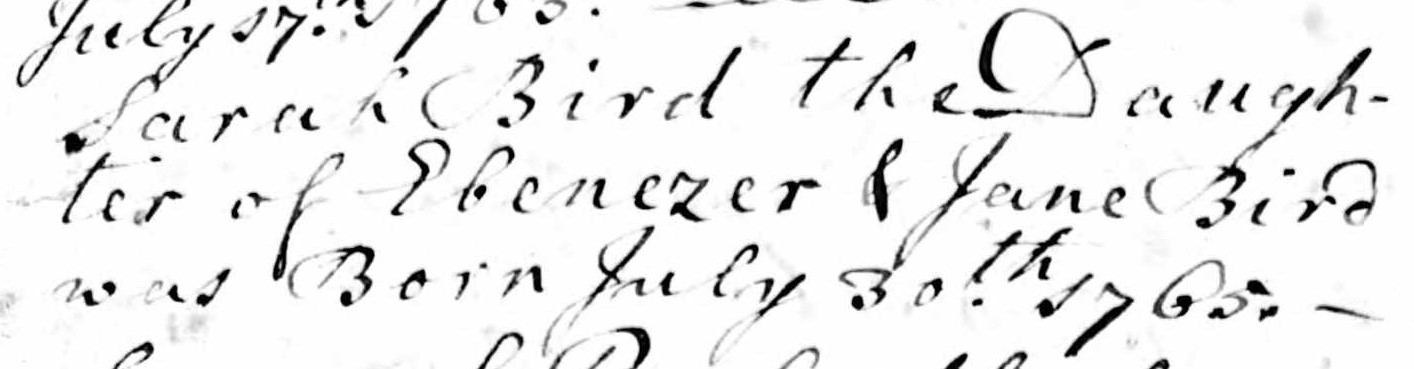 July 17.th 1763.
Sarah Bird the Daugh-
ter of Ebenezer & Jane Bird
was Born July 30.th 1765. –